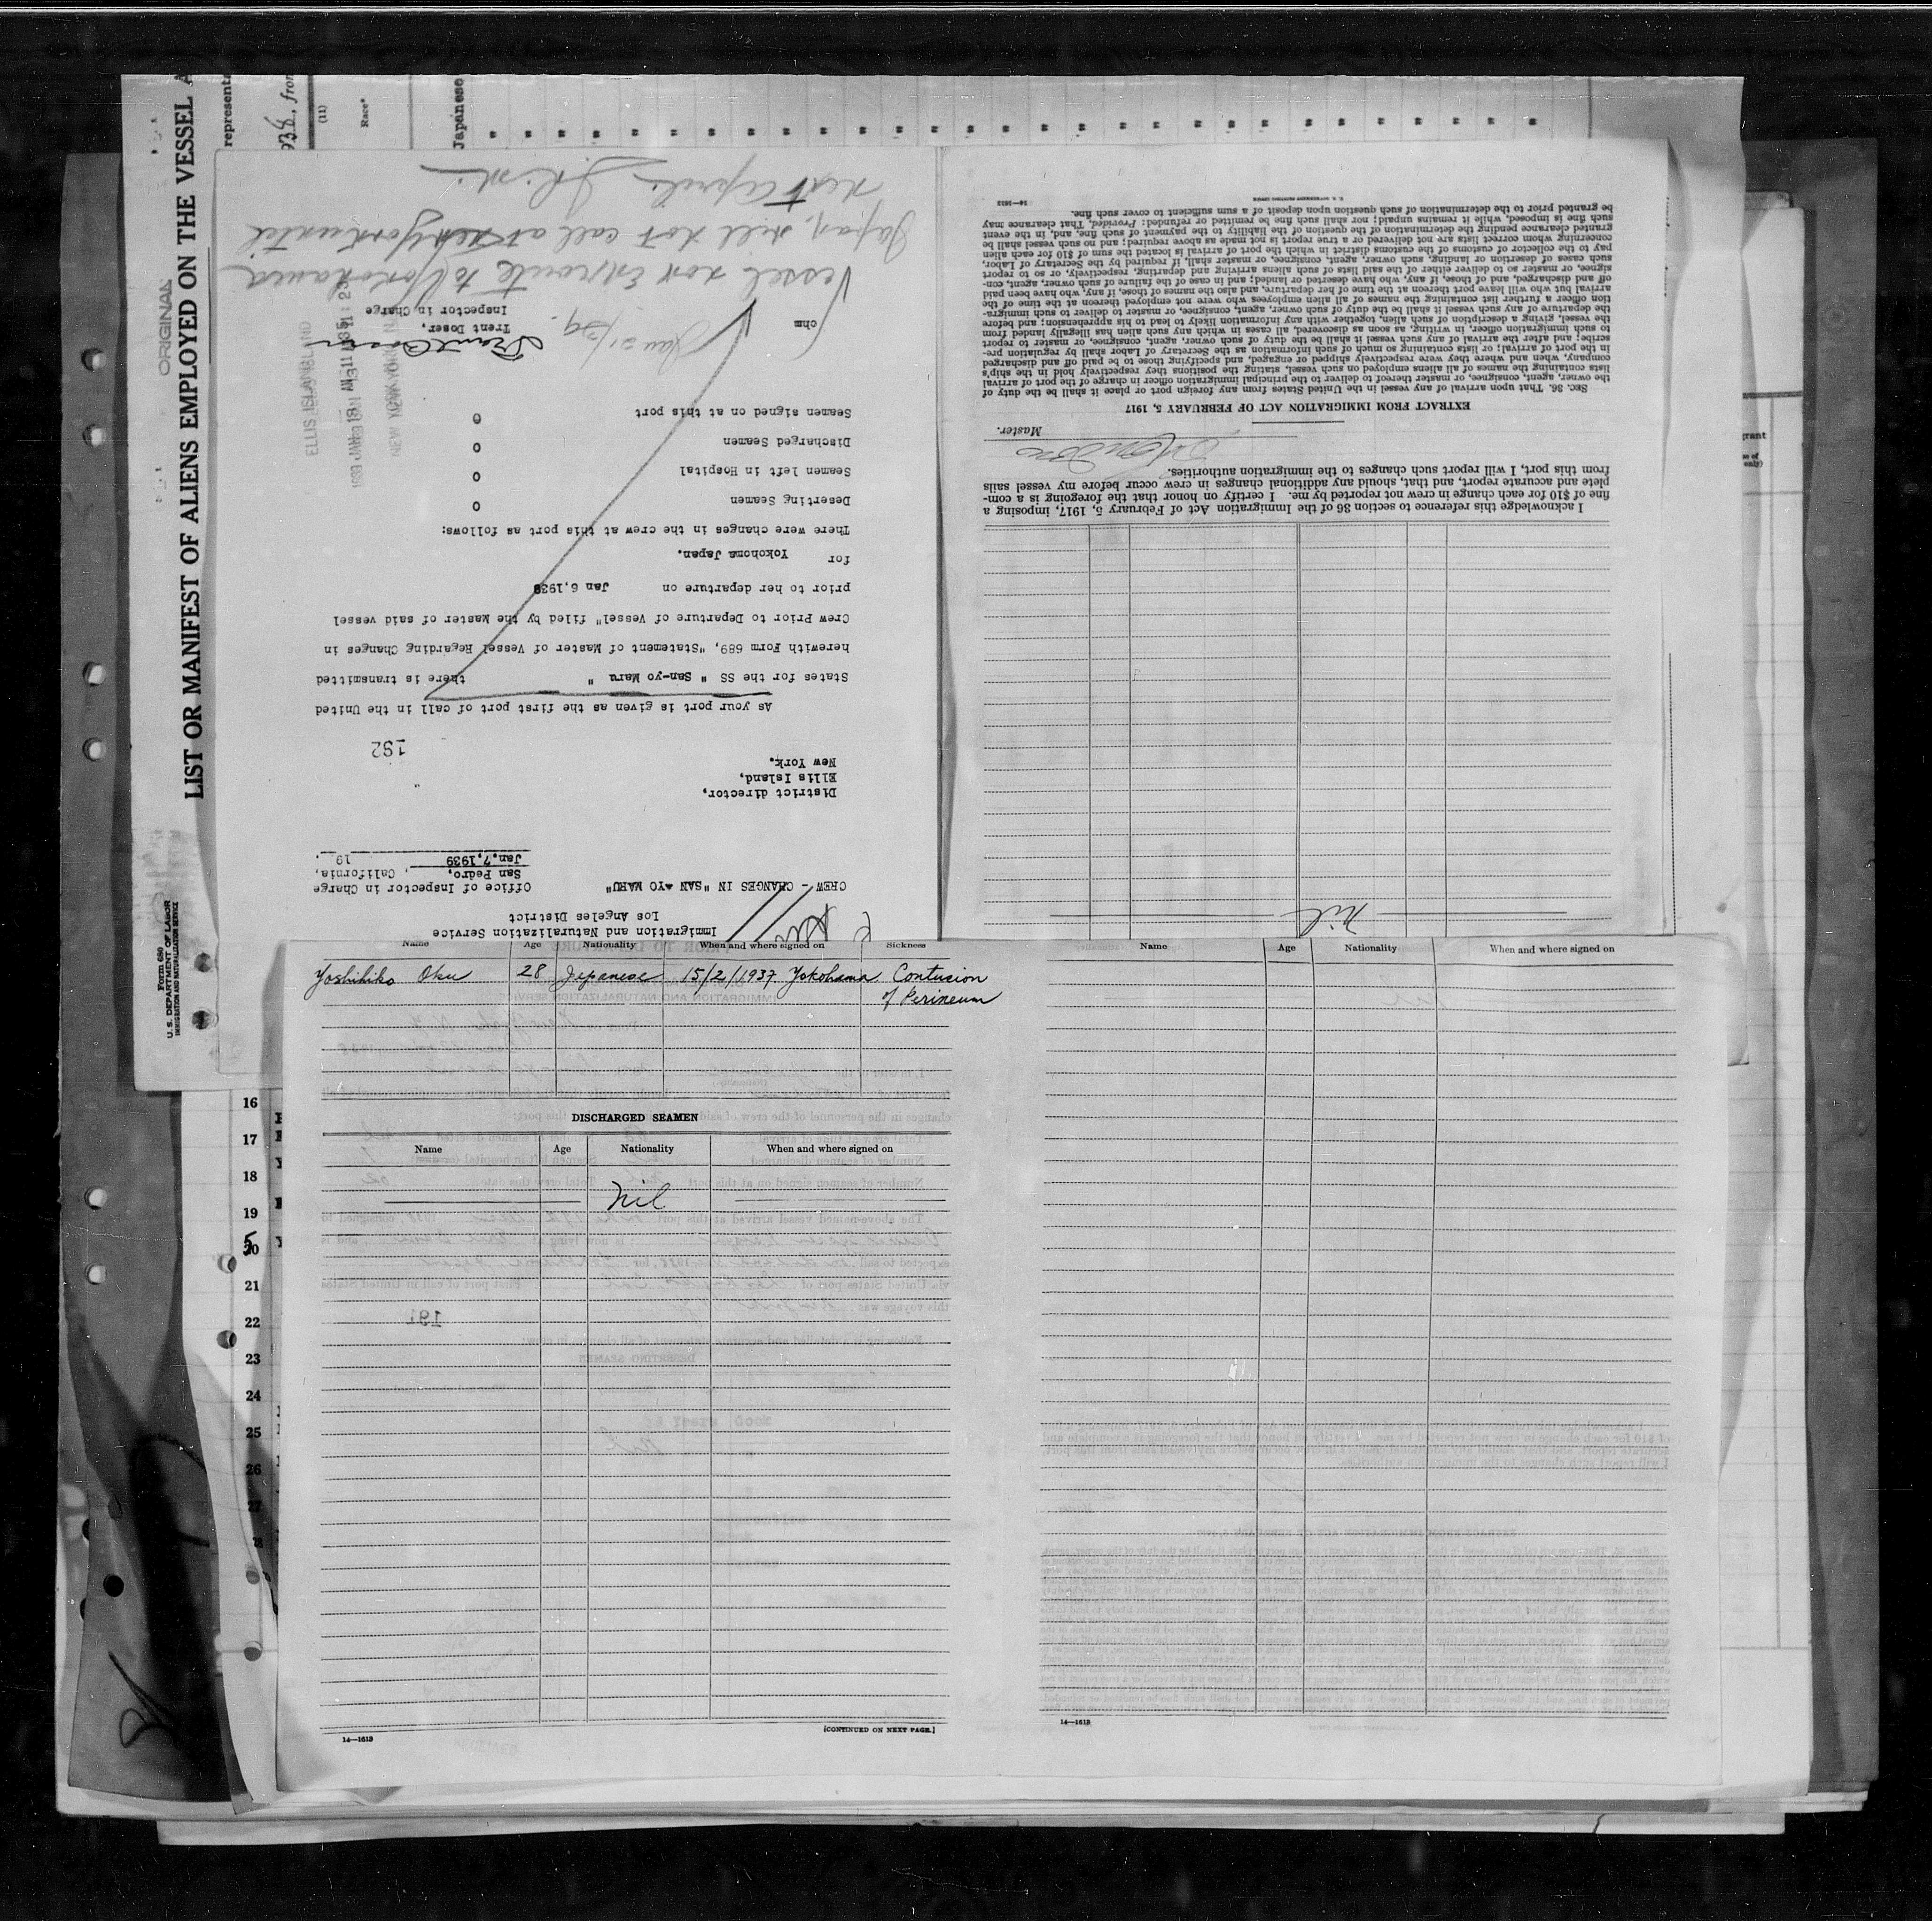 LIST OR MANIFEST OF ALIENS EMPLOYED ON THE VESSEL A
ORIGINAL
Form 680
U. S. DEPARTMENT OF LABOR
IMMIGRATION AND NATURALIZATION SERVICE
represent
938, fron
(11)
Race*
Japanese
Immigration and Naturalization Service
Los Angeles District
CREW - CHANGES IN "SAN YO MARU"
Office of Inspector in Charge
San Pedro, , California,
Jan.7,1939 19 .
District director,
Ellis Island,
New York.
192
As your port is given as the first port of call in the United
States for the SS " San-yo Maru " there is transmitted
herewith Form 689, "Statement of Master of Vessel Regarding Changes in
Crew Prior to Departure of Vessel" filed by the Master of said vessel
prior to her departure on Jan 6,1939
for Yokohoma Japan.
There were changes in the crew at this port as follows:
Deserting Seamen 0
Seamen left in Hospital 0
Discharged Seamen 0
Seamen signed on at this port 0
Trent Doser,
Inspector in Charge
ohm
Jan 31/39.
ELLIS ISLAND
Vessel now enroute to Yokohama
Japan, will not call at New York until
next April.
Nil
I acknowledge this reference to section 36 of the Immigration Act of February 5, 1917, imposing a
fine of $10 for each change in crew not reported by me. I certify on honor that the foregoing is a com-
plete and accurate report, and that, should any additional changes in crew occur before my vessel sails
from this port, I will report such changes to the immigration authorities.
Master.
EXTRACT FROM IMMIGRATION ACT OF FEBRUARY 5, 1917
SEC. 36. That upon arrival of any vessel in the United States from any foreign port or place it shall be the duty of
the owner, agent, consignee, or master thereof to deliver to the principal immigration officer in charge of the port of arrival
lists containing the names of all aliens employed on such vessel, stating the positions they respectively hold in the ship's
company, when and where they were respectively shipped or engaged, and specifying those to be paid off and discharged
in the port of arrival; or lists containing so much of such information as the Secretary of Labor shall by regulation pre-
scribe; and after the arrival of any such vessel it shall be the duty of such owner, agent, consignee, or master to report
to such immigration officer, in writing, as soon as discovered, all cases in which any such alien has illegally landed from
the vessel, giving a description of such alien, together with any information likely to lead to his apprehension; and before
the departure of any such vessel it shall be the duty of such owner, agent, consignee, or master to deliver to such immigra-
tion officer a further list containing the names of all alien employees who were not employed thereon at the time of the
arrival but who will leave port thereon at the time of her departure, and also the names of those, if any, who have been paid
off and discharged, and of those, if any, who have deserted or landed; and in case of the failure of such owner, agent, con-
signee, or master so to deliver either of the said lists of such aliens arriving and departing, respectively, or so to report
such cases of desertion or landing, such owner, agent, consignee, or master, shall, if required by the Secretary of Labor,
pay to the collector of customs of the customs district in which the port of arrival is located the sum of $10 for each alien
concerning whom correct lists are not delivered or a true report is not made as above required; and no such vessel shall be
granted clearance pending the determination of the question of the liability to the payment of such fine, and, in the event
such fine is imposed, while it remains unpaid; nor shall such fine be remitted or refunded: Provided, That clearance may
be granted prior to the determination of such question upon deposit of a sum sufficient to cover such fine.
U. S. GOVERNMENT PRINTING OFFICE 14—1613
Name Age Nationality When and where signed on Sickness
Yoshihiko Oku 28 Japanese 15/2/1937 Yokohama Contusion
of Perineum
DISCHARGED SEAMEN
Name Age Nationality When and where signed on
Nil
191
[CONTINUED ON NEXT PAGE.]
14—1613
Name Age Nationality When and where signed on
14—1613
16
17
18
19
20
21
22
23
24
25
26
27